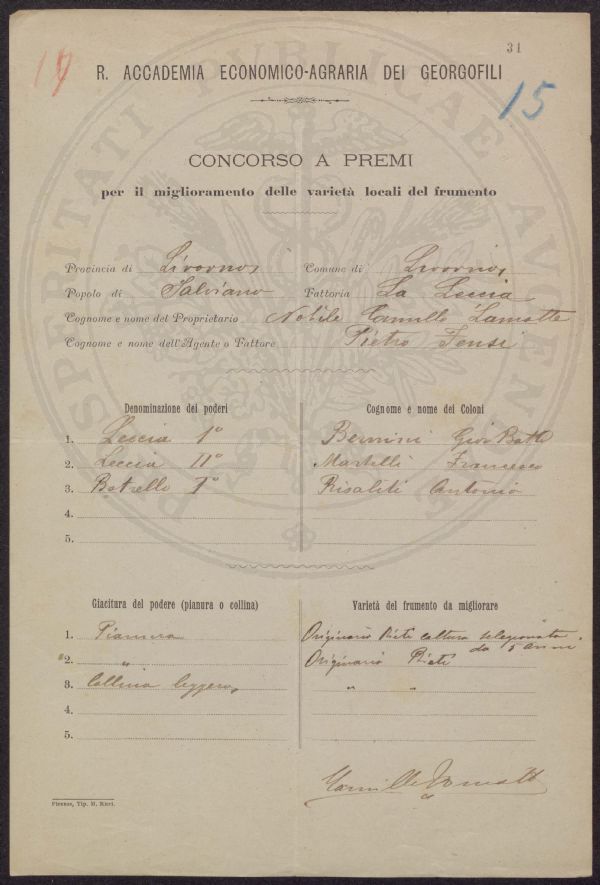 31
17
15
R. ACCADEMIA ECONOMICO-AGRARIA DEI GEORGOFILI
PROSPERITATI PUBLICAE AUGENDAE
CONCORSO A PREMI
per il miglioramento delle varietà locali del frumento
Provincia di Livorno, Comune di Livorno,
Popolo di Salviano Fattoria La Leccia
Cognome e nome del Proprietario Nobile Camillo
Cognome e nome dell'Agente o Fattore Pietro
Denominazione dei poderi
Cognome e nome dei Coloni
1. Leccia I° Bernini Giov Batta
2. Leccia II° Martelli Francesco
3. I° Risaliti Antonio
4.
5.
Giacitura del podere (pianura o collina)
Varietà del frumento da migliorare
1. Pianura Originario Rieti coltura selezionata da 5 anni
2. " Originario Rieti
3. Collina leggera, " "
4.
5.
Firenze, Tip. M. Ricci.